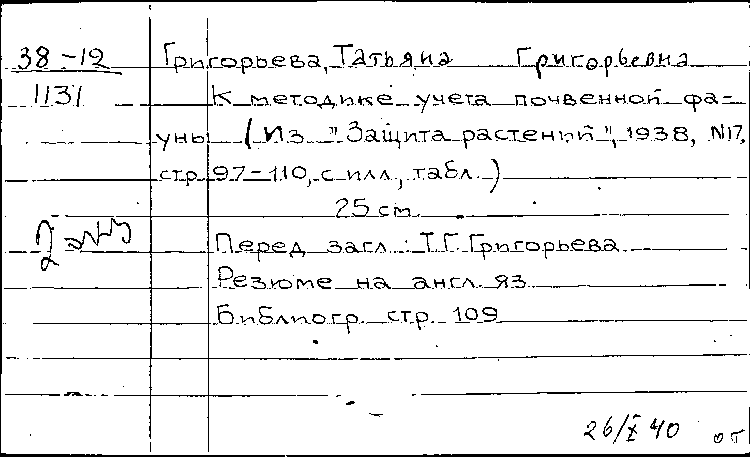 38-12
1131
Григорьева, Татьяна Григорьевна
К методике учета почвенной фа-
уны (Из "Защита растений", 1938, N17,
стр. 97-110, с илл., табл.)
25 cm.
Перед загл.: Т.Г. Григорьева
Резюме на англ. яз.
Библиогр. стр. 109
26/X 40 от